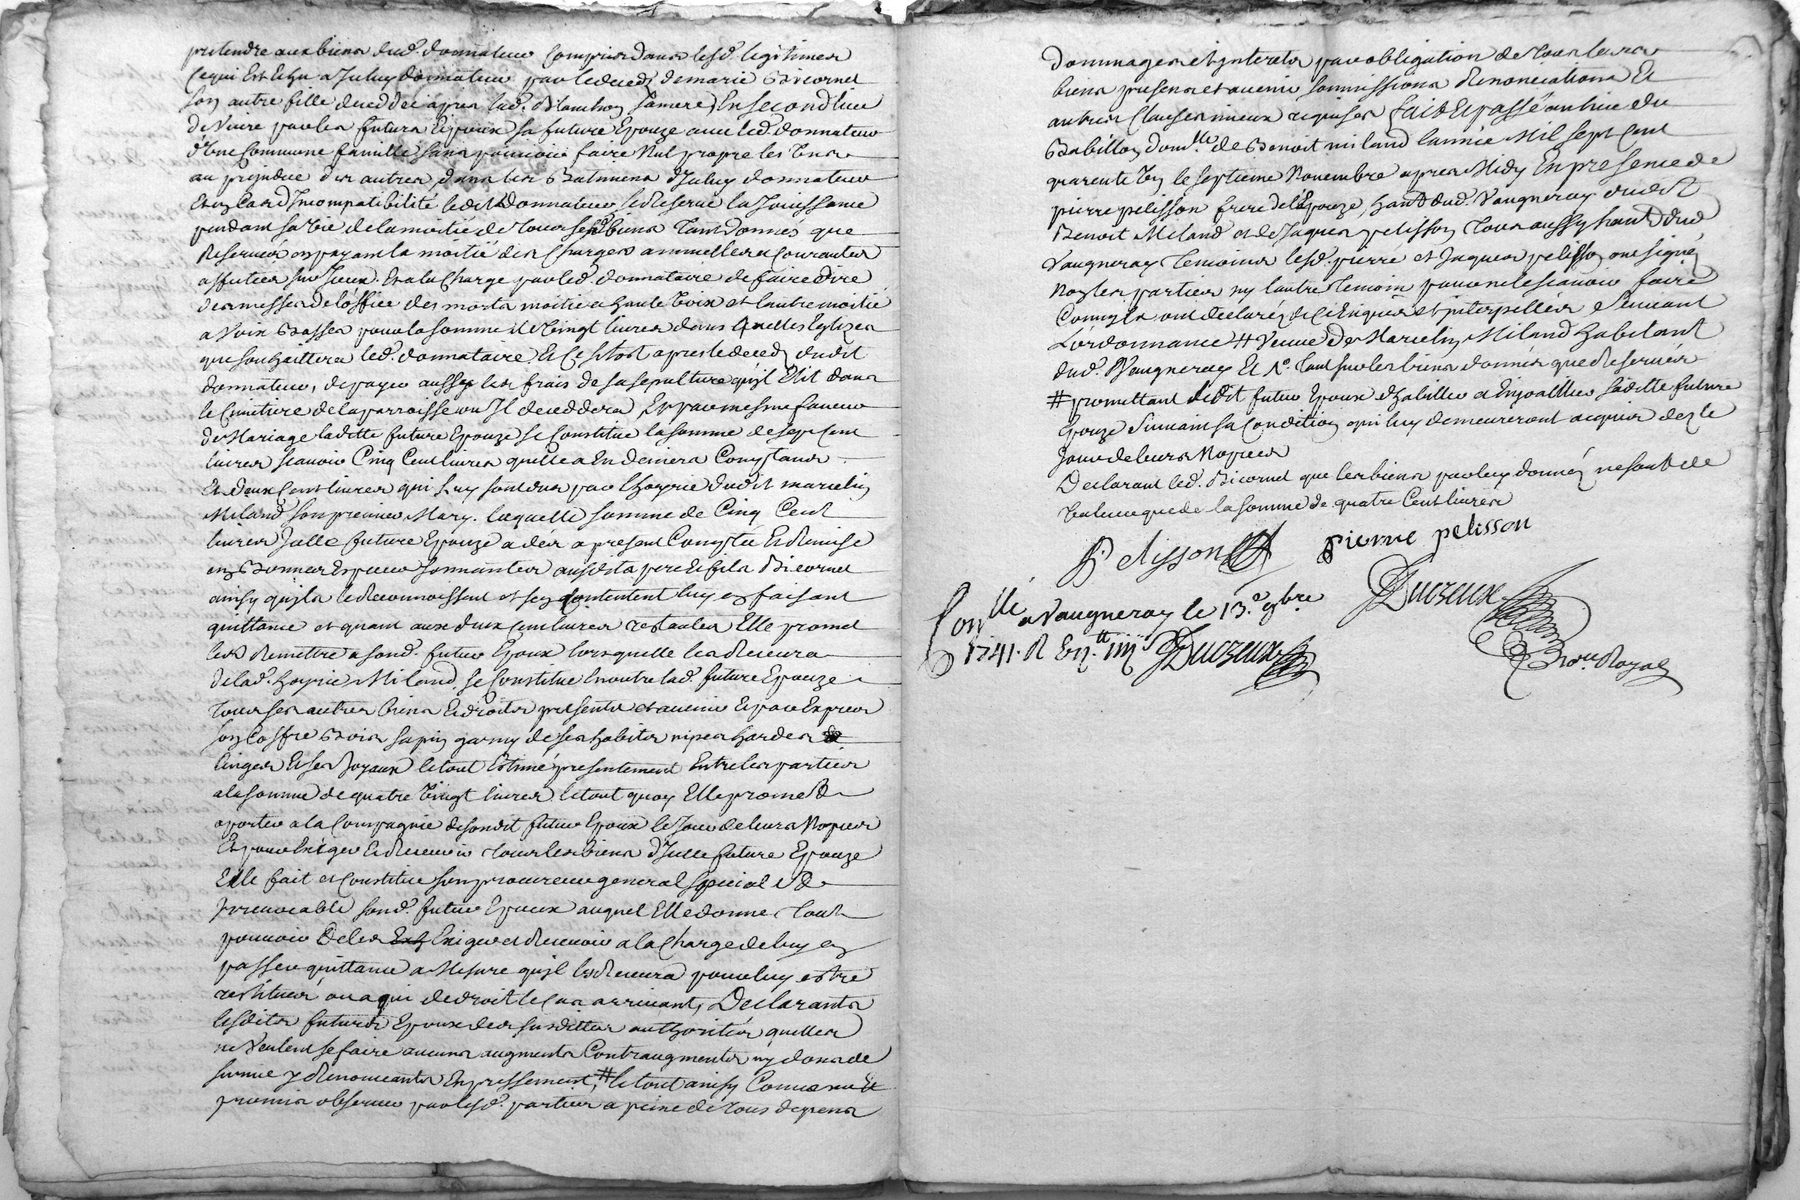 pretendre aux biens dud. donnateur Compris dans lesd. legitimes
Ce qui Est Echu a Iceluy donnateur par le deceds de marie Bicornet
Son autre fille decedée apres lad. Blanchon Sa mere, En second lieu
de Vivre par les futurs Epoux sa future Epouze avec led. donnateur
d'Une Commune famille sans pouvoir faire Nul propre les Uns
au prejudice des autres dans les Batimens d'Iceluy donnateur
Et en Cas d'Incompatibilité ledit donnateur se Reserve la Jouissance
pendant sa vie de la moitié de tous sesd. biens tant donnés que
Reservés en payant la moitié des Charges annuelles Courantes
affectées sur Iceux. Et a la Charge par led. donnataire de faire dire
des messes de l'office des morts moitié a haute Voix et l'autre moitié
a Voix Basses pour la somme de Vingt livres dans telles Eglizes
que souhaittera led. donnataire Et Ce sitost apres le deceds dudit
donnateur, de payer aussy les frais de sa sepulture qu'il Elit dans
le Cimetiere de la parroisse ou Il decedera Et par mesme faveur
de Mariage laditte future Epouze se Constitue la somme de sept Cent
livres scavoir Cinq Cent livres quelle a En deniers Comptans
Et deux Cent livres qui luy sont dus par l'hoyrie dudit marcelin
Miland son premier Mary. laquelle somme de Cinq Cent
livres Icelle future Epouze a des a present Comptée Et Remise
en Bonnes Especes sonnantes ausdits pere Et fils Bicornet
ainsy qu'ils le Reconnoissent et s'en Contentent luy en faisant
quittance et quant aux deux Cent livres restantes Elle promet
les Remettre a sond. futur Epoux lorsquelle les Recevra
de lad. hoyrie Miland. se Constitue En outre lad. future Epouze
tous ses autres biens Et droits presents et avenir Et par Expres
son Coffre Bois sapin garny de ses habits nipes hardes
linges Et ses Joyaux le tout Estimé presentement Entre les parties
a la somme de quatre Vingt livres le tout quoy Elle promet
aporter a la Compagnie de sondit futur Epoux le Jour de leurs Nopces
Et pour Exiger Et Recevoir tous les biens d'Icelle future Epouze
Elle fait et Constitue son procureur general special Et
Irrevocable sond. futur Epoux auquel Elle donne tout
pouvoir de les Exiger et Recevoir a la Charge de luy en
passer quittance a Mesure qu'il les Recevra pour luy estre
restitués ou a qui de droit le Cas arrivant, Declarants
lesdits futurs Epoux des susdittes authorités quelles
ne Veulent se faire aucuns augments Contraugments ny dons de
survie y Renonceants Expressement, # le tout ainsy Convenu Et
promis observer par lesd. parties a peine de tous depens
dommages et Interets par obligation de tous leurs
biens presens et avenir soumissions Renonciations Et
autres Clauses mieux requises fait Et passé au lieu du
Babillon domlle de Benoit miland l'année Mil sept Cent
quarente Un le septieme Novembre apres Midy En presence de
pierre pelisson frere de l'Epouze, habt dud. Vaugneray dudit
Benoit Miland et de Jaques pelisson tous aussy habt dud
Vaugneray temoins lesd. pierre et Jaques pelisson ont signé,
Non les parties ny l'autre temoin pour ne le scavoir faire
Comme Ils ont declaré de ce Enquis et Interpellés Suivant
L'ordonnance # Veuve de Marcelin Miland habitant
dud. Vaugneray Et No. tant sur les biens donnés que Reservés
# promettant ledit futur Epoux d'habiller et Enjoailler saditte future
Epouze Suivant sa Condition qui luy demeureront acquis dez le
Jour de leurs Nopces
Declarant led. Bicornet que les biens par luy donnés ne sont de
Valeur que de la somme de quatre Cent livres
P. elisson pierre pelisson
Ducreux
Conllé a Vaugneray le 13.e 9bre
1741. R
Ducreux
Nore. Royal